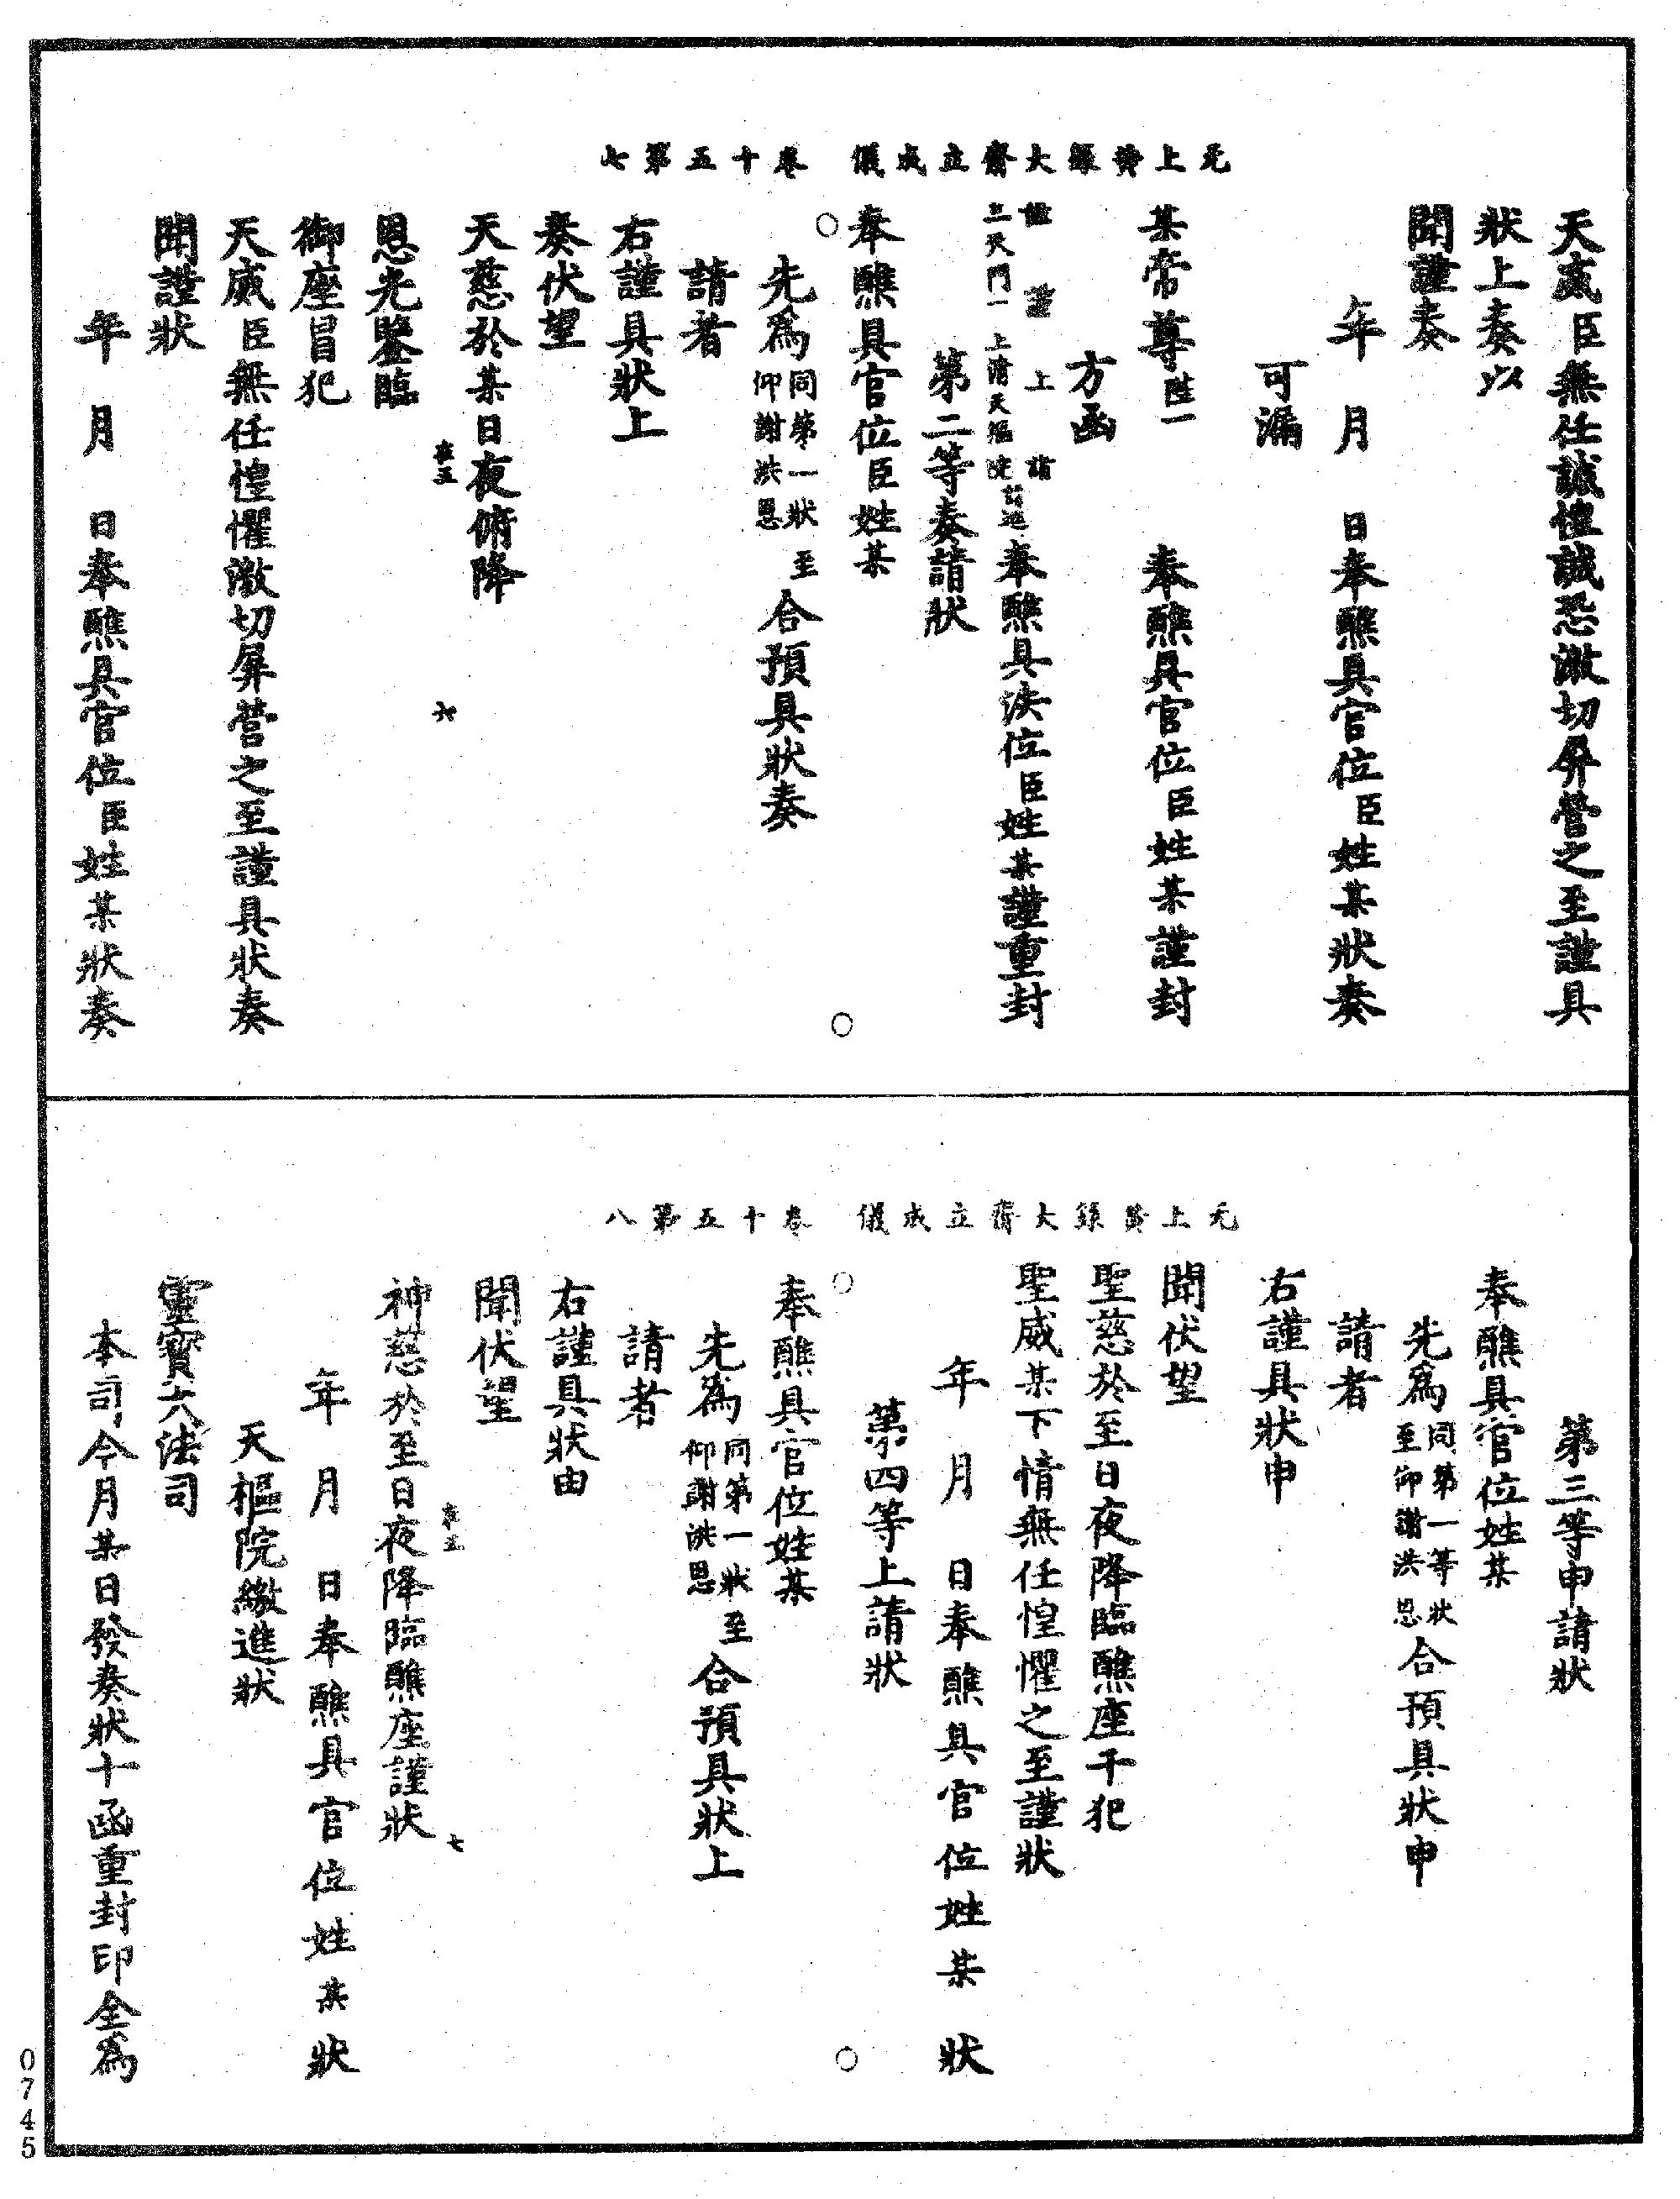 无上黃籙大齋立成儀　卷十五第七
天威臣無任誠惶誠恐激切屏營之至謹具
狀上奏以
聞謹奏
年　月　日奉醮具官位臣姓某狀奏
可漏
某帝尊陛一　奉醮具官位臣姓某謹封
方函
謹　謹　上　請
上清天樞院
三天門一　奉醮具法位臣姓某謹重封
第二等奏請狀
奉醮具官位臣姓某
先為同第一狀至仰謝洪恩合預具狀奏
請者
右謹具狀上
奏伏望
天慈於某日夜俯降
恩光鑒臨
御座冒犯
天威臣無任惶懼激切屏營之至謹具狀奏
聞謹狀
年　月　日奉醮具官位臣姓某狀奏
六
无上黃籙大齋立成儀　卷十五第八
第三等申請狀
奉醮具官位姓某
先為同第一等狀至仰謝洪恩合預具狀申
請者
右謹具狀申
聞伏望
聖慈於至日夜降臨醮座干犯
聖威某下情無任惶懼之至謹狀
年　月　日奉醮具官位姓某狀
第四等上請狀
奉醮具官位姓某
先為同第一狀至仰謝洪恩合預具狀上
請者
右謹具狀由
聞伏望
神慈於至日夜降臨醮座謹狀
年　月　日奉醮具官位姓某狀
天樞院繳進狀
靈寶大法司
本司今月某日發奏狀十函重封印全為
七
0745